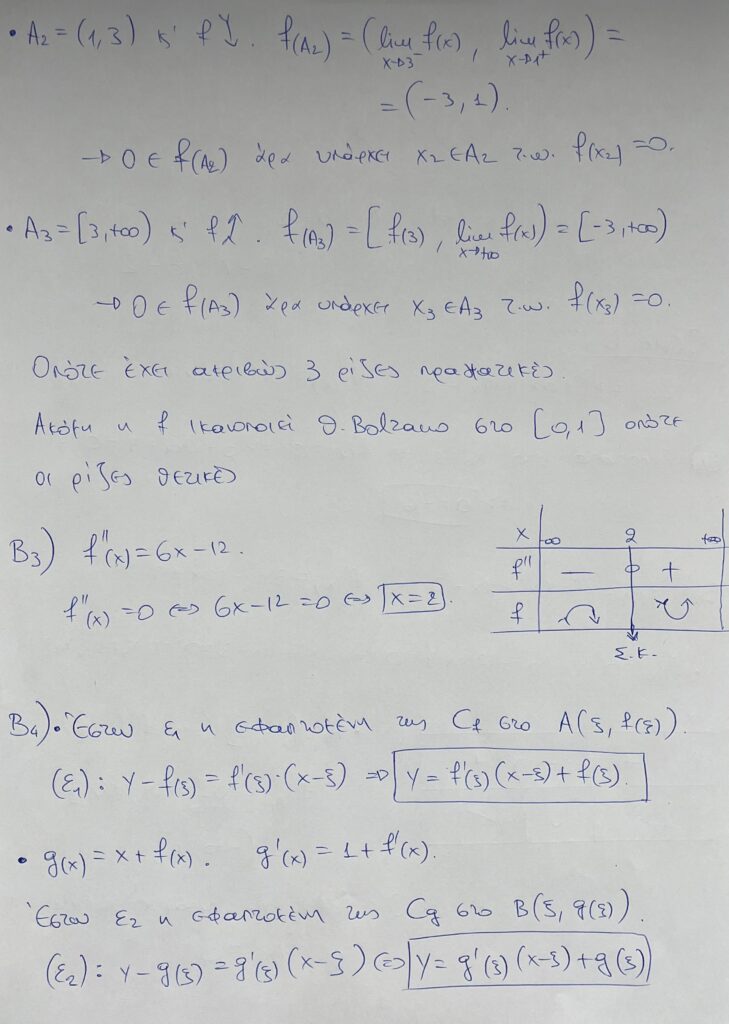 • A₂ = (1,3) κ' f↓. f(A₂) = (lim x→3⁻ f(x), lim x→1⁺ f(x)) =
= (-3, 1).
→ 0 ∈ f(A₂) άρα υπάρχει x₂ ∈ A₂ τ.ω. f(x₂) = 0.
• A₃ = [3, +∞) κ' f↑. f(A₃) = [f(3), lim x→+∞ f(x)) = [-3, +∞)
→ 0 ∈ f(A₃) άρα υπάρχει x₃ ∈ A₃ τ.ω. f(x₃) = 0.
Οπότε έχει ακριβώς 3 ρίζες πραγματικές.
Ακόμη η f ικανοποιεί θ. Bolzano στο [0,1] οπότε
οι ρίζες θετικές
B₃) f''(x) = 6x - 12.
f''(x) = 0 ⇔ 6x - 12 = 0 ⇔ x = 2.
x -∞ 2 +∞
f'' - 0 +
f
Σ.Κ.
B₄) • Έστω ε₁ η εφαπτομένη της Cf στο A(ξ, f(ξ)).
(ε₁): y - f(ξ) = f'(ξ)·(x-ξ) ⇒ y = f'(ξ)(x-ξ) + f(ξ).
• g(x) = x + f(x). g'(x) = 1 + f'(x).
Έστω ε₂ η εφαπτομένη της Cg στο B(ξ, g(ξ)).
(ε₂): y - g(ξ) = g'(ξ)(x-ξ) ⇔ y = g'(ξ)(x-ξ) + g(ξ)